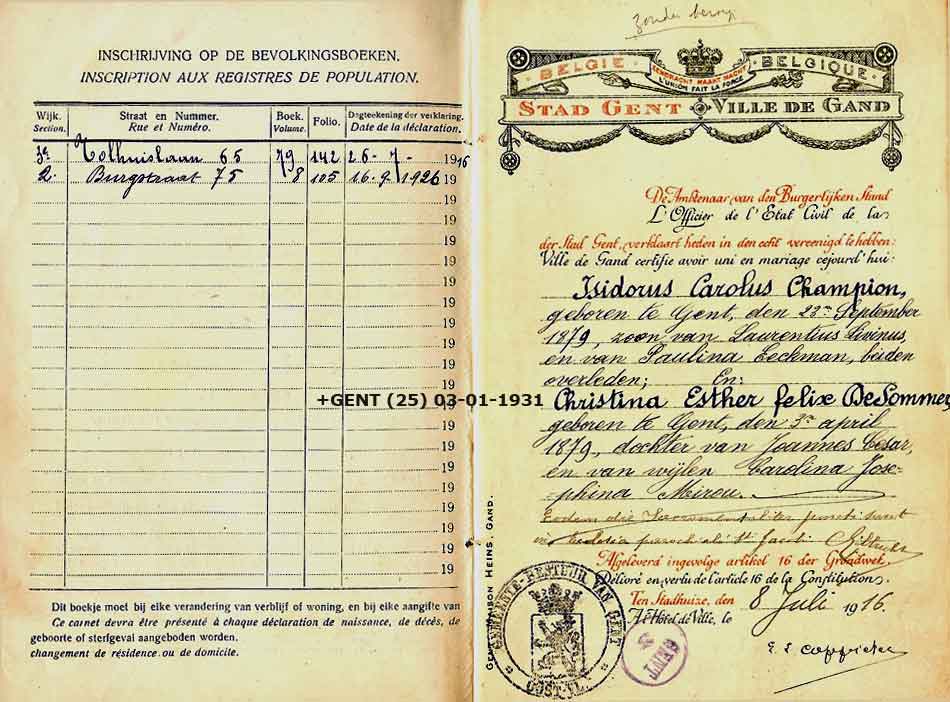 INSCHRIJVING OP DE BEVOLKINGSBOEKEN.
INSCRIPTION AUX REGISTRES DE POPULATION.
Wijk. Straat en Nummer. Boek. Folio. Dagteekening der verklaring.
Section. Rue et Numéro. Volume. Date de la déclaration.
3e Tolhuislaan 65 79 142 26-7-1916
2. Burgstraat 75 8 105 16-9/1926 19
19
19
19
19
19
19
19
19
19
19
19
19
19
19
19
19
19
19
19
+GENT (25) 03-01-1931
Dit boekje moet bij elke verandering van verblijf of woning, en bij elke aangifte van
Ce carnet devra être présenté à chaque déclaration de naissance, de décès, de
geboorte of sterfgeval aangeboden worden.
changement de résidence ou de domicile.
zonder beroep
BELGIE BELGIQUE
EENDRACHT MAAKT MACHT
L'UNION FAIT LA FORCE
STAD GENT VILLE DE GAND
De Ambtenaar van den Burgerlijken Stand
L'Officier de l'Etat Civil de la
der Stad Gent, verklaart heden in den echt vereenigd te hebben:
Ville de Gand certifie avoir uni en mariage cejourd'hui:
Isidorus Carolus Champion,
geboren te Gent, den 23en September
1879, zoon van Laurentius Livinus,
en van Paulina Eeckman, beiden
overleden; En:
Christina Esther Felix DeSommer,
geboren te Gent, den 3en april
1879, dochter van Joannes Cesar,
en van wijlen Carolina Jose-
phina Mirou.
Eodem die Sacramentaliter juncti sunt
in Ecclesia parochiali St Jacobi
Afgeleverd ingevolge artikel 16 der Grondwet.
Délivré en vertu de l'article 16 de la Constitution.
Ten Stadhuize, den
8 Juli 1916.
A l'Hôtel de Ville, le
GEMEENTE-BESTUUR VAN GENT
OOST-VL.
GENT
MAISON HEINS, GAND.